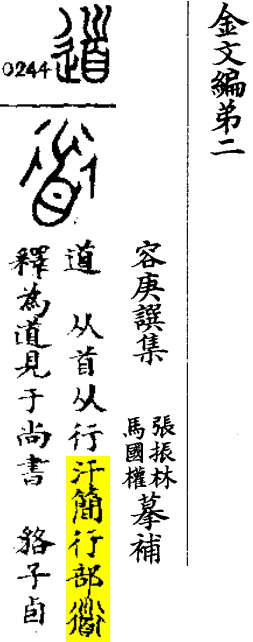 金文編弟二
容庚譔集
張振林
馬國權
摹補
0244
道 从首从行汗簡行部
釋為道見于尚書 貉子卣